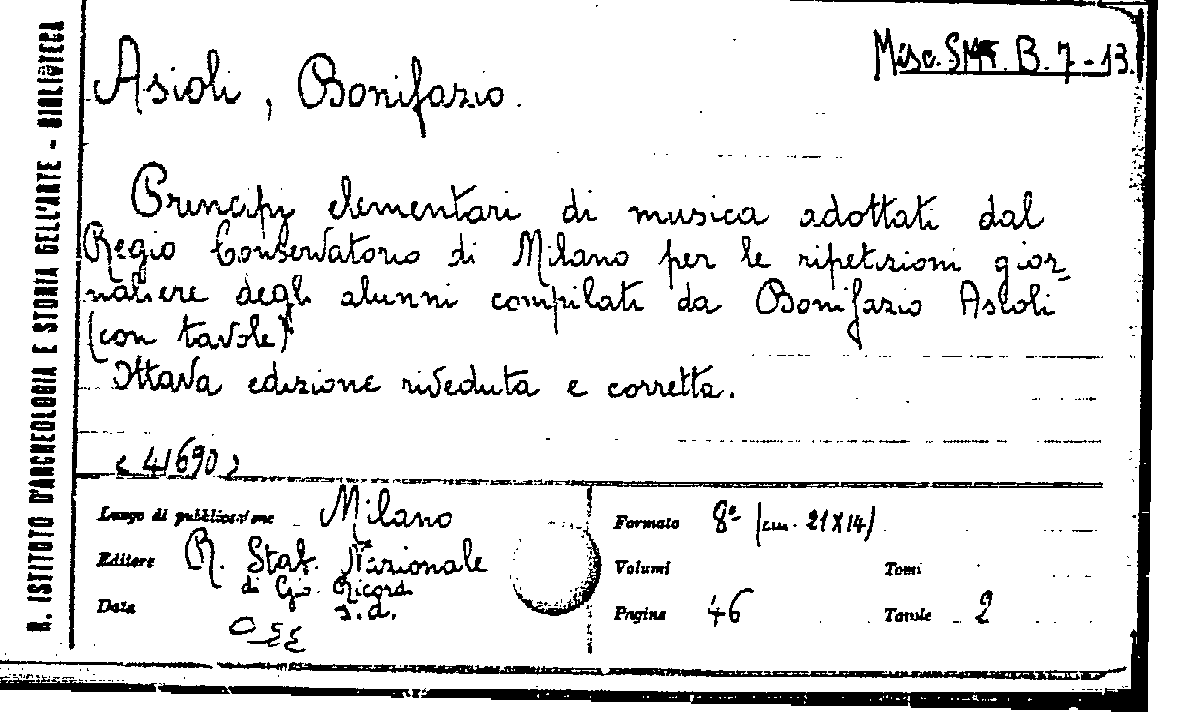 R. ISTITUTO D'ARCHEOLOGIA E STORIA DELL'ARTE - BIBLIOTECA
Misc. B. 7-13.
Asioli, Bonifazio.
Principj elementari di musica adottati dal
Regio Conservatorio di Milano per le ripetizioni gior-
naliere degli alunni compilati da Bonifazio Asioli
(con tavole)
Ottava edizione riveduta e corretta.
<41690>
Luogo di pubblicazione Milano
Editore R. Stab. Nazionale
di Gio. Ricordi
Data s.d.
Formato 8° (cm. 21X14)
Volumi
Tomi
Pagine 46
Tavole 2